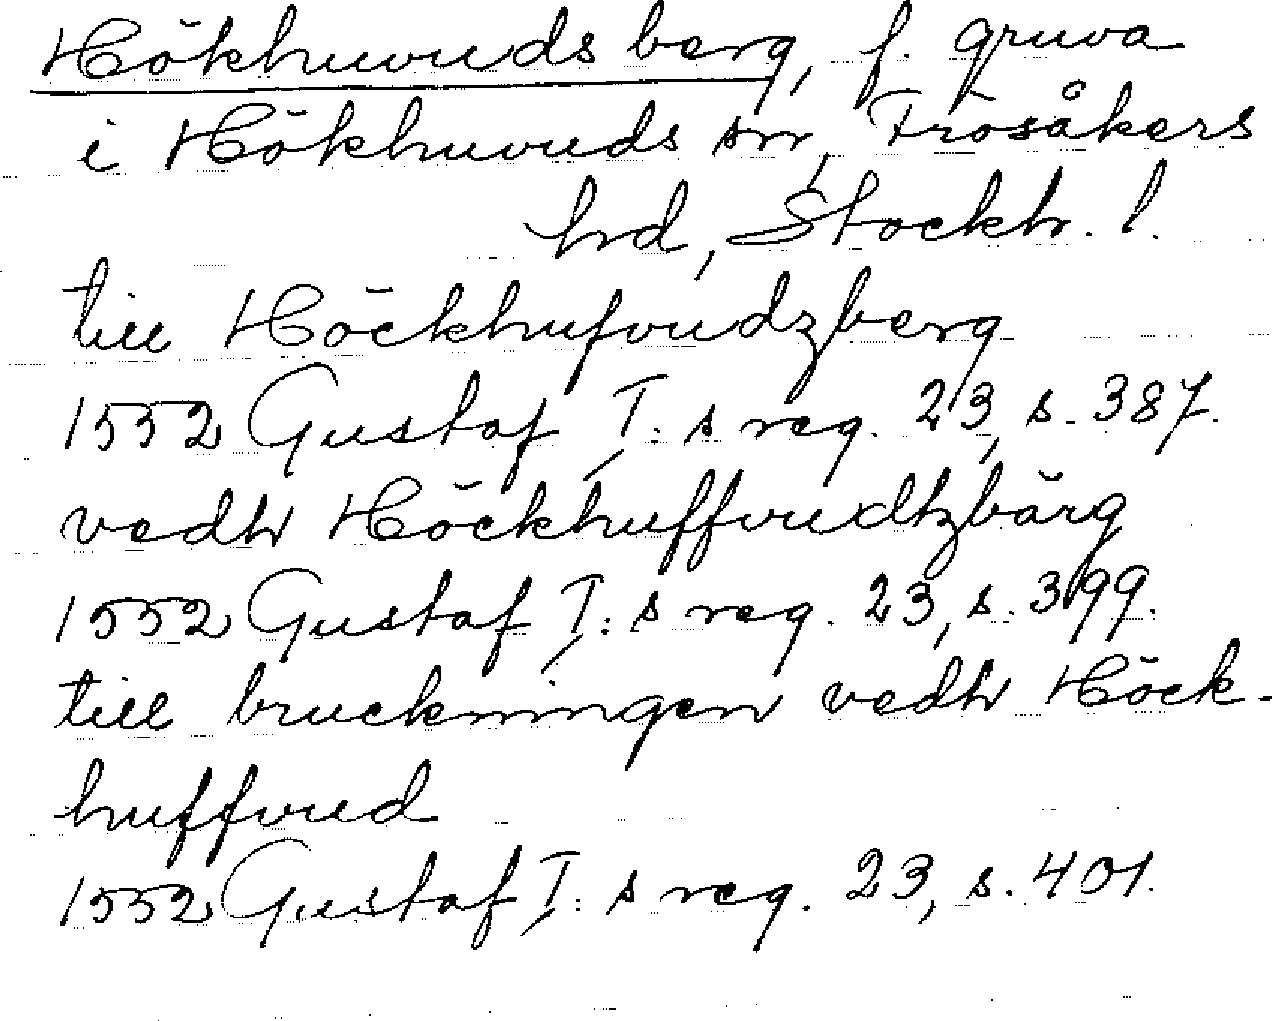 Hökhuvuds berg, f. gruva
i Hökhuvuds sn, Frösåkers
hrd, Stockh. l.
till Höckhufvudzberg
1552 Gustaf I:s reg. 23, s. 387.
vedh Höckhuffvudtzbärg
1552 Gustaf I:s reg. 23, s. 399.
till bruckningen vedh Höck-
huffvud
1552 Gustaf I:s reg. 23, s. 401.